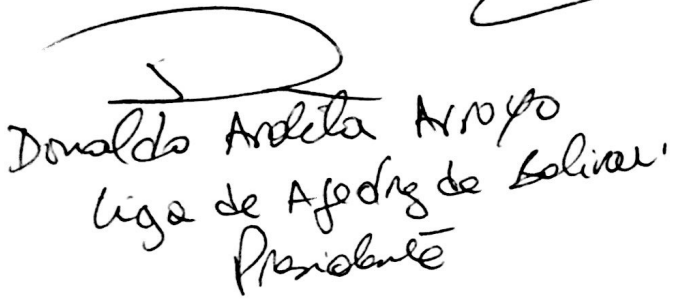 Donaldo Ardila Arroyo
Liga de Ajedrez de Bolivar.
Presidente